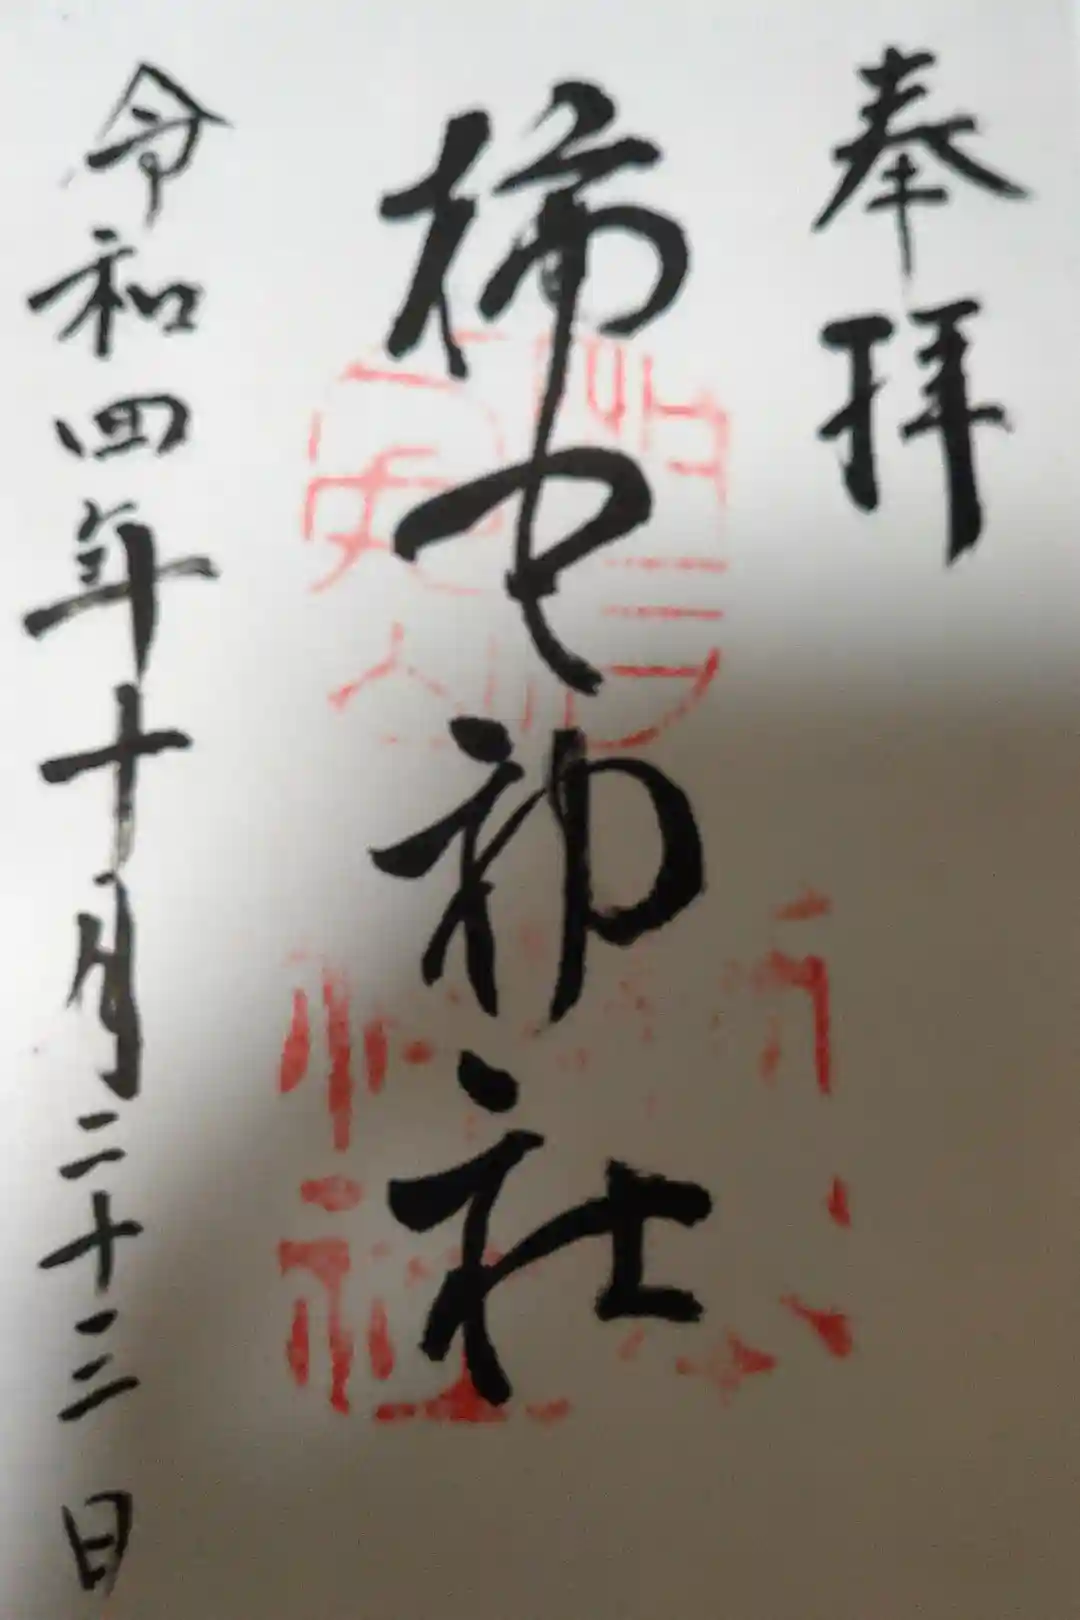 奉拝
柿本神社
令和四年十月二十三日